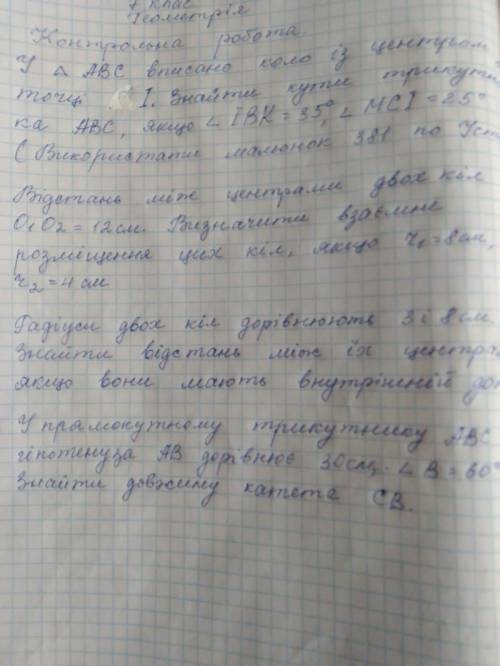 7 клас
Геометрія
Контрольна робота
У △ ABC вписано коло із центром
точці I. Знайти кути трикутн
ка ABC, якщо ∠ IBK = 35°, ∠ MCI = 25°
(Використати малюнок 381 по
Відстань між центрами двох кіл
O₁O₂ = 12 см. Визначити взаємне
розміщення цих кіл, якщо r₁ = 8 см,
r₂ = 4 см
Радіуси двох кіл дорівнюють 3 і 8 см
Знайти відстань між їх центра
якщо вони мають внутрішній дот
У прямокутному трикутнику ABC
гіпотенуза AB дорівнює 30 см, ∠ B = 60°
Знайти довжину катета CB.